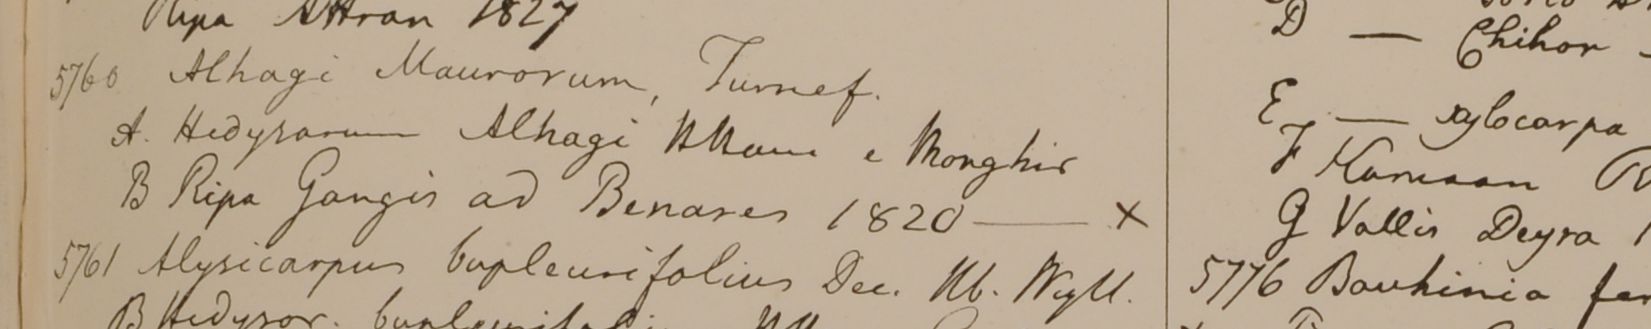 Ripa Attran 1827
5760 Alhagi Maurorum, Turnef.
A. Hedysarum Alhagi HHam e Monghir
B Ripa Gangis ad Benares 1820 — X
5761 Alysicarpus bupleurifolius Dec. Hb. Wight.
B Hedysar. bupleurifoli
D — Chihor
E — xylocarpa
F Kamaon
G Vallis Deyra
5776 Bauhinia